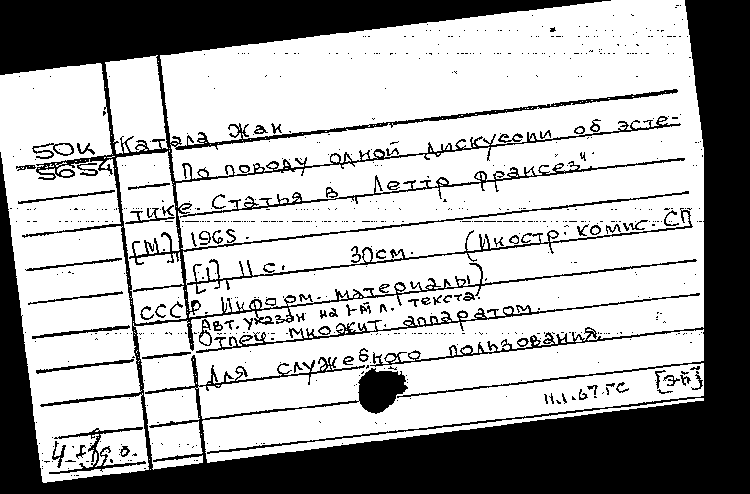 50К Катала, Жак.
5654
По поводу одной дискуссии об эсте-
тике. Статья в „Леттр франсез".
[М.], 1965.
[1], 11 с. 30см. (Иностр. комис. СП
СССР. Информ. материалы)
Авт. указан на 1-й л. текста.
Отпеч. множит. аппаратом.
Для служебного пользования.
11.1.67 ГС [Э-Б]